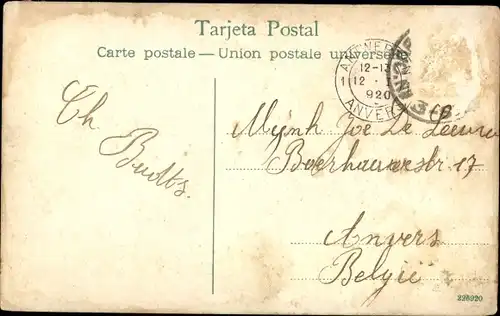 Tarjeta Postal
Carte postale — Union postale universelle
ANTWERP
12-13
1 12
920
ANVERS
Ch
Buolts.
Mijnh Joe De Leeuw
Boerhavestr 17
Anvers
Belgie
226920